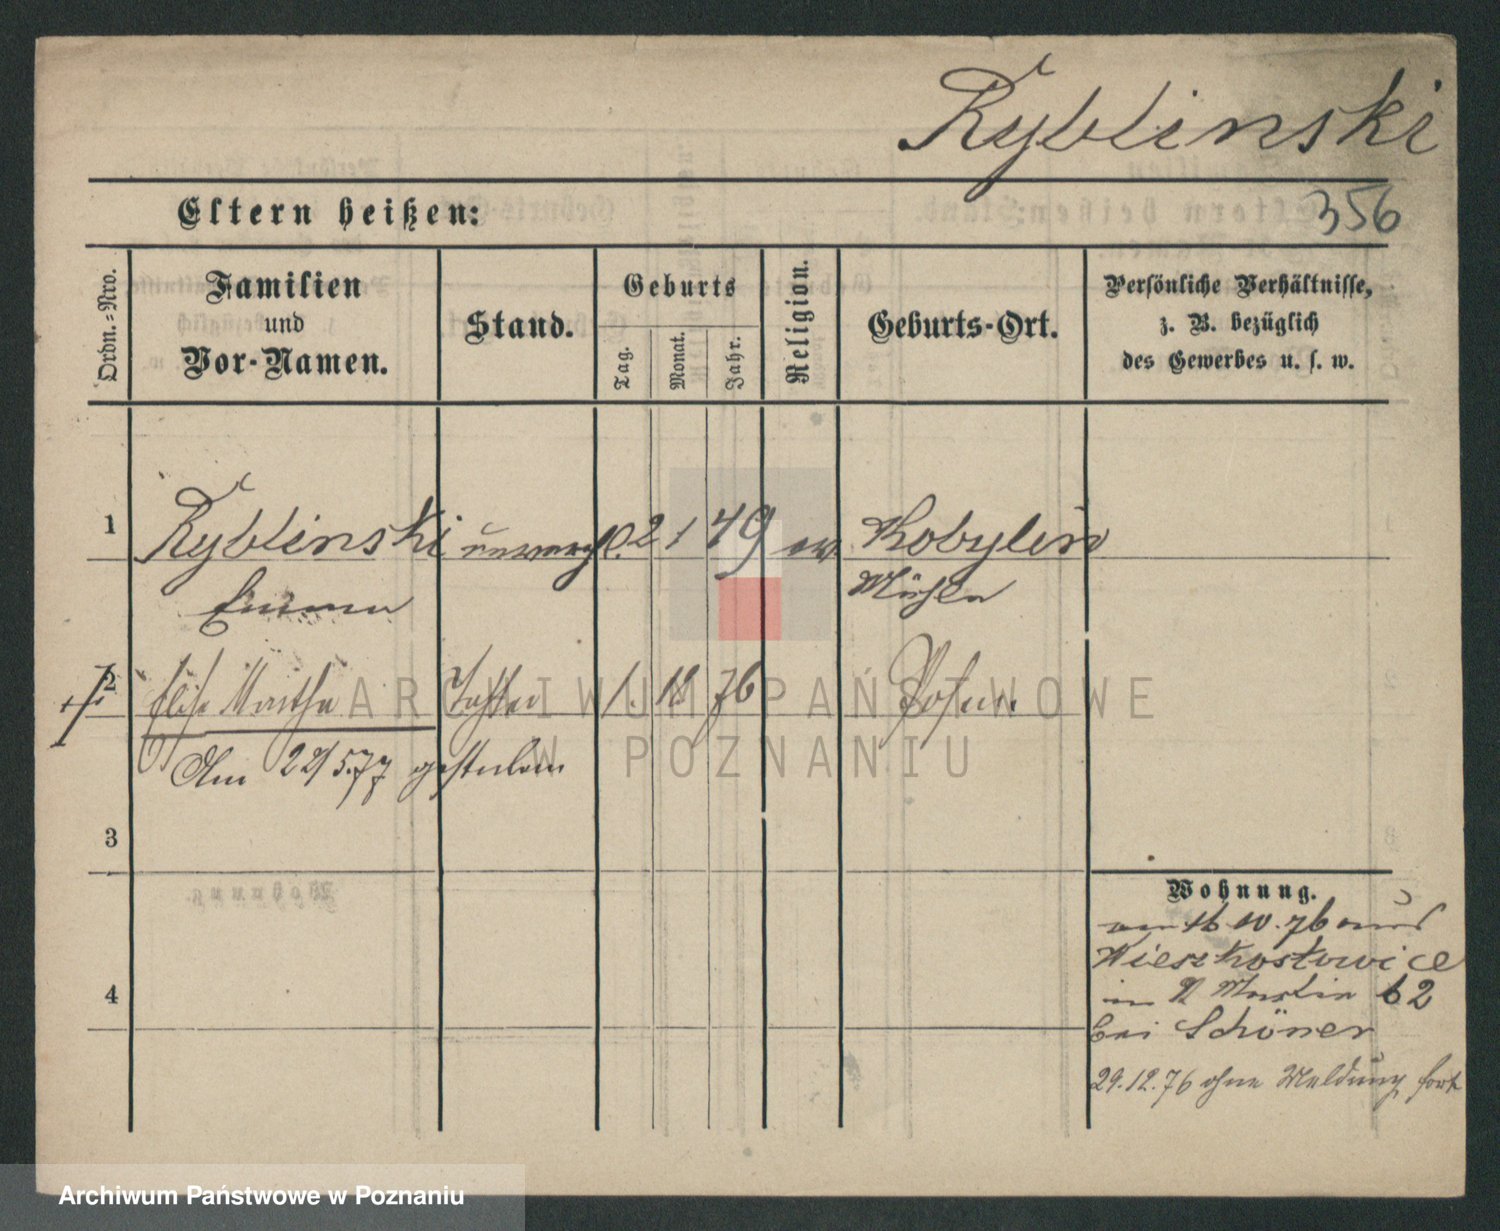 Ryblinski
356
Eltern heißen:
Ordn.-Nro.
Familien
und
Vor-Namen.
Stand.
Geburts
Tag.
Monat.
Jahr.
Religion.
Geburts-Ort.
Persönliche Verhältnisse,
z. B. bezüglich
des Gewerbes u. s. w.
1
Ryblinski
2 1 49
Kobylin
Emma
Mühle
2
Elise Martha
Tochter
1. 12 76
Posen.
Am 22/5.77 gestorben
3
4
Wohnung.
am 16 10. 76 aus
in St Martin 62
bei Schöner
29.12.76 ohne Meldung fort
ARCHIWUM PAŃSTWOWE
W POZNANIU
Archiwum Państwowe w Poznaniu